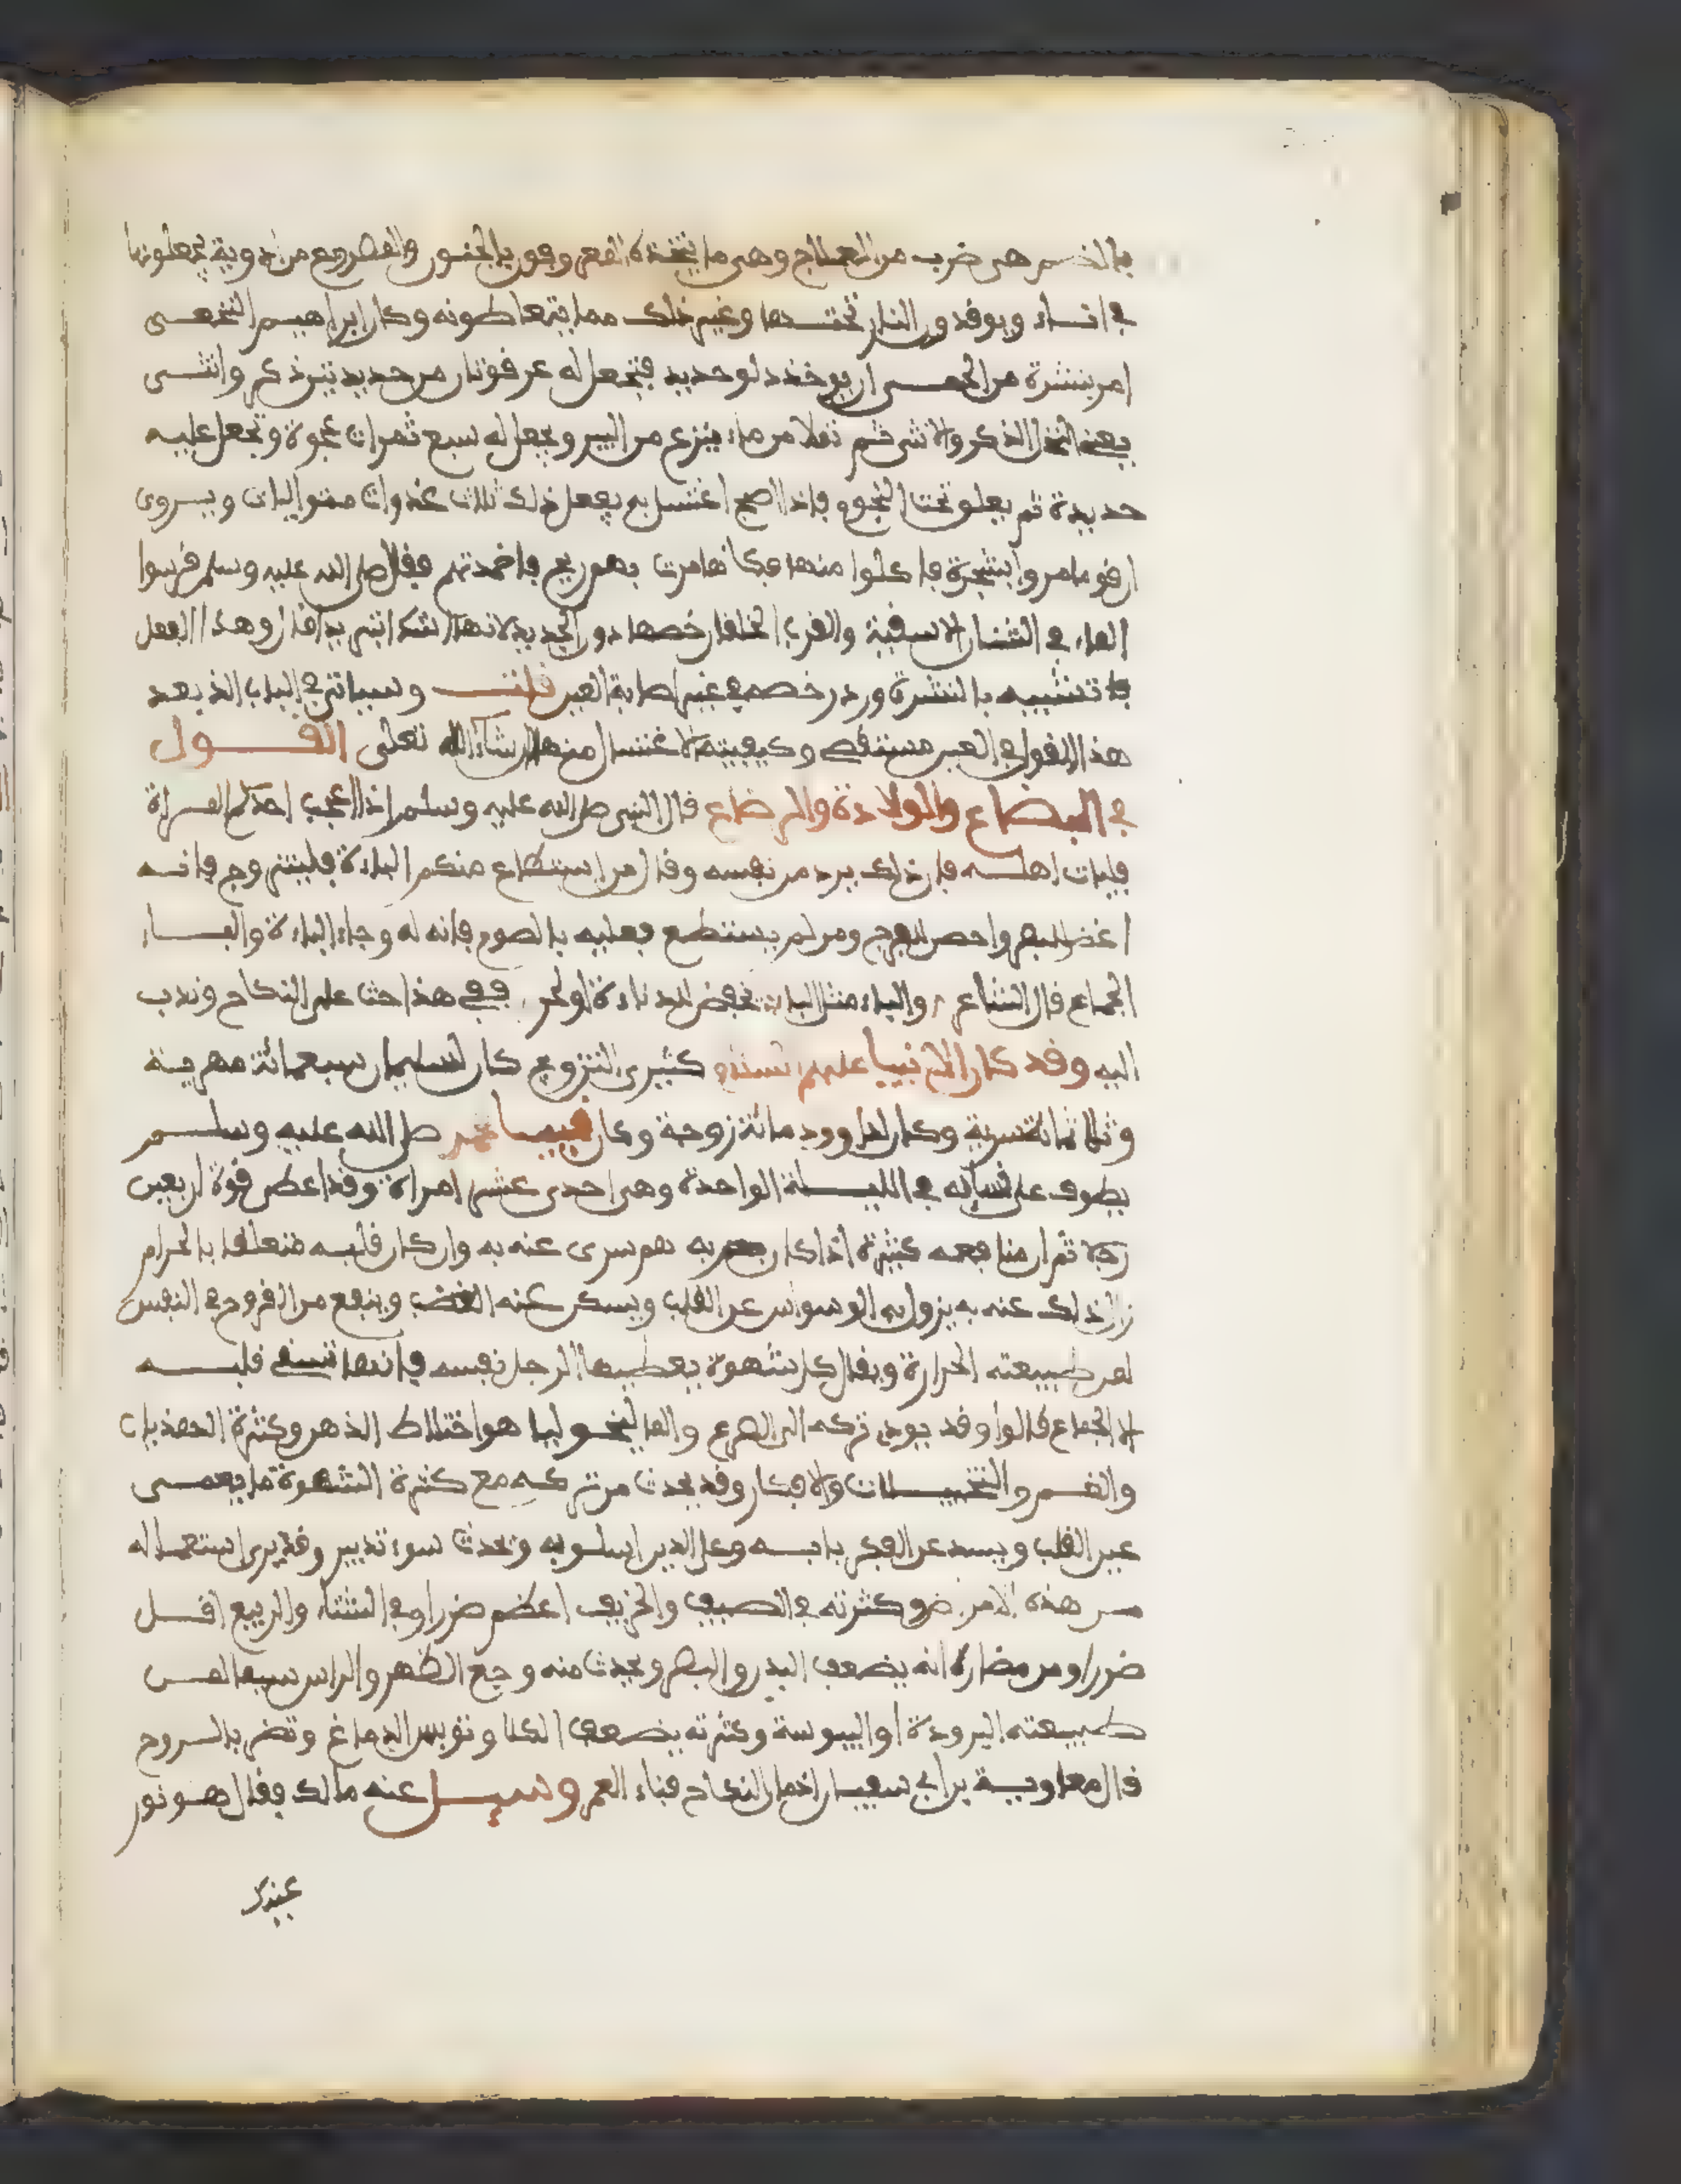 بالضم هى ضرب من العلاج وهى ما يتخذه من ادوية يجعلونها
فى اناء ويوفدون النار تحتها وغير ذلك مما يتعاطونه وكان ابراهيم النخعى
امر بنشرة من الحمى ان يوخذ دلو حديد فتجعل له عرفوتان من حديد ذكر وانثى
يعنى الذكر والانثى ثم تملا من ماء ينزع من البير ويجعل له سبع تمرات عجوة وتجعل عليه
حديدة ثم يعلو تحت النجوم فاذا اصبح اغتسل به يفعل ذلك ثلاث غدوات متواليات ويروى
ان فوما مروا بشجرة فاكلوا منها فكانما مرت بهم ريح فاخمدتهم ففال صلى الله عليه وسلم فرسوا
الماء فى الشنان الاسفية والفرب الخلفان خصها دون الجديد لانها اشد تبريدا فال وهذا الفعل
تشبيه بالنشرة ورد رخصه فى غير اصابة العين فلت وسياتى فى الباب الذى بعد
هذا الفول فى العين وكيفية الاغتسال منها ان شاء الله تعلى الفول
فى البضاع والولادة والرضاع فال النبى صلى الله عليه وسلم اذا اعجب احدكم المراة
فليات اهله فان ذلك يرد من نفسه وفال من استطاع منكم الباءة فليتزوج فانه
اغض للبصر واحصن للفرج ومن لم يستطع فعليه بالصوم فانه له وجاء الباءة والباء
الجماع فال الشاعر والباء مثل الباء تخفض للدناءة او تجر ففى هذا حث على النكاح وندب
اليه وفد كان الانبيا عليهم السلام كثيرى التزويج كان لسليمان سبعمائة مهرية
وثلاثمائة سرية وكان لداوود مائة زوجة وكان نبينا محمد صلى الله عليه وسلم
يطوف على نسائه فى الليلة الواحدة وهى احدى عشر امراة وفد اعطى فوة اربعين
رجلا ثم ان منافعه كثيرة اذا كان به هم سرى عنه به وان كان فلبه متعلفا بالحرام
زال ذلك عنه به يزول به الوسواس عن الفلب ويسكن عنه الغضب وينفع من الفروح فى النفس
لمن طبيعته الحرارة ويفال كل شهوة يعطيها الرجل نفسه فانها تفسى فلبه
الا الجماع فالوا وفد يودى تركه الى الصرع والمالنخوليا هو اختلاط الذهن وكثرة الهذيان
والغم والتخييلات والافكار وفد يحدث من تركه مع كثرة الشهوة ما يعمى
عين الفلب ويسد عن الفكر بابه وعلى الدين اسلوبه ويحدث سوء تدبير وفد يرى استعماله
من هذه الامراض وكثرته فى الصيف والخريف اعظم ضررا وفى الشتاء والربيع افل
ضررا ومن مضاره انه يضعف البدن والبصر ويحدث منه وجع الظهر والراس سيما لمن
طبيعته البرودة او اليبوسة وكثرته يضعف الكلا وتوبس الدماغ وتضر بالروح
فال معاوية بن ابى سفيان النكاح فناء العمر وسيل عنه مالك ففال هو نور
عينيك